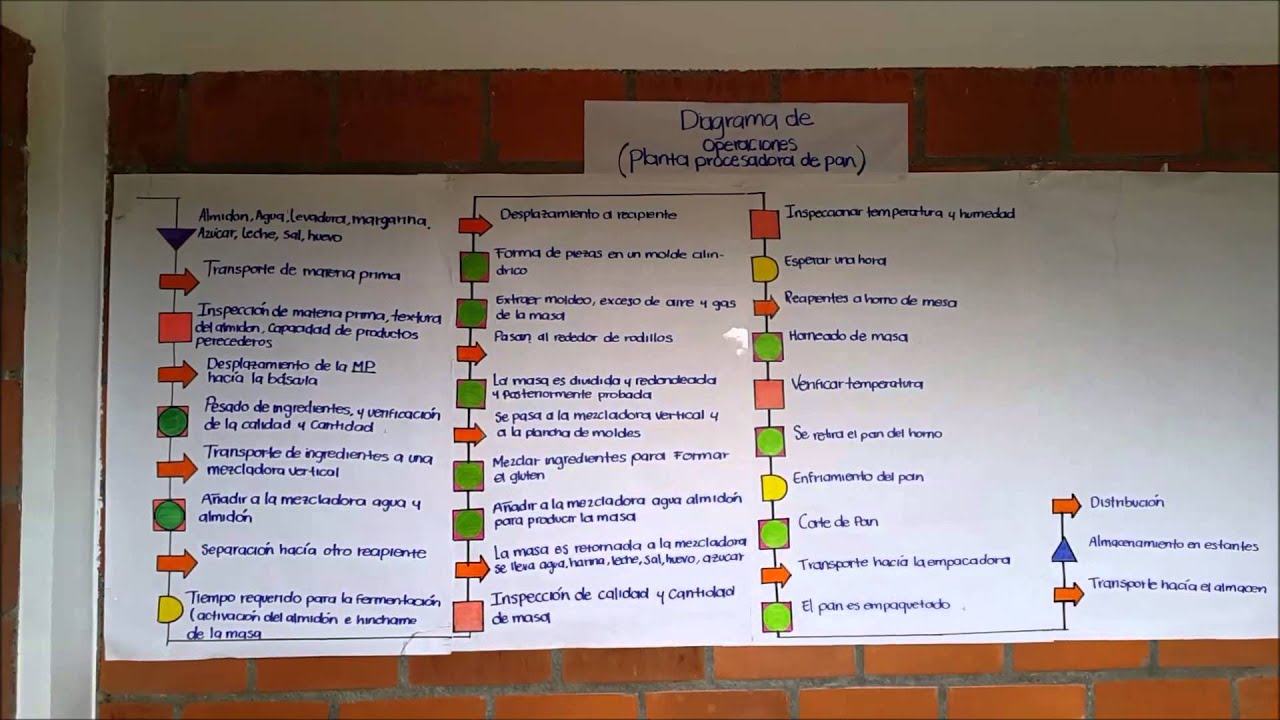 Diagrama de
Operaciones
(Planta procesadora de pan)
Almidon, Agua, levadura, margarina,
Azúcar, leche, sal, huevo
Transporte de materia prima
Inspección de materia prima, textura
del almidon, Capacidad de productos
perecederos
Desplazamiento de la MP
hacía la báscula
Pesado de ingredientes, y verificación
de la calidad y Cantidad
Transporte de ingredientes a una
mezcladora vertical
Añadir a la mezcladora agua y
almidón
Separación hacía otro recipiente
Tiempo requerido para la fermentación
(activación del almidón e hinchame
de la masa
Desplazamiento a recipiente
Forma de piezas en un molde cilin-
drico
Extraer moldeo, exceso de aire y gas
de la masa
Pasan al rededor de rodillos
La masa es dividida y redondeada
y Posteriormente probada
Se pasa a la mezcladora vertical y
a la plancha de moldes
Mezclar ingredientes para Formar
el gluten
Añadir a la mezcladora agua almidón
para producir la masa
La masa es retornada a la mezcladora
se lleva agua, harina, leche, sal, huevo, azucar
Inspección de calidad y Cantidad
de masa
Inspeccionar temperatura y humedad
Esperar una hora
Recipientes a horno de mesa
Horneado de masa
Verificar temperatura
Se retira el pan del horno
Enfriamiento del pan
Corte de Pan
Transporte hacía la empacadora
El pan es empaquetado
Distribución
Almacenamiento en estantes
Transporte hacía el almacen